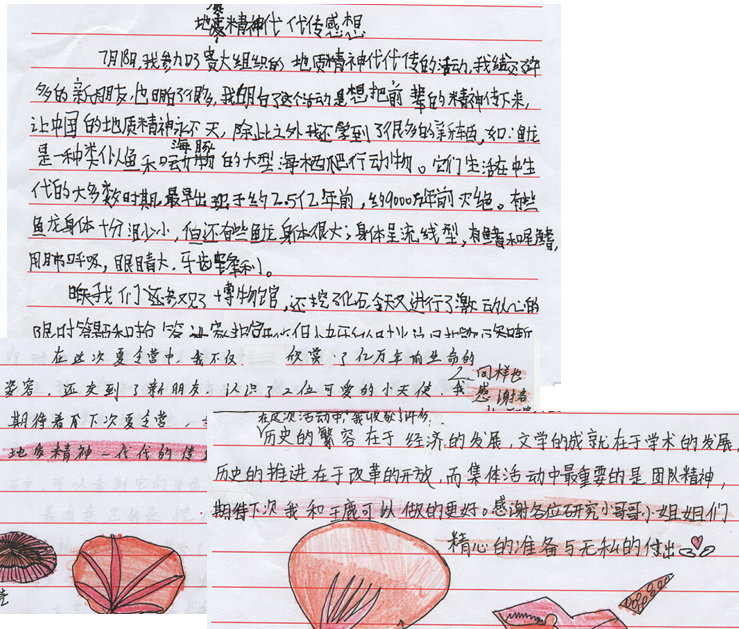 地质精神代代传感想
7月8日,我参加了贵大组织的地质精神代代传的活动,我结交了许
多的新朋友,也明白了很多,我明白了这个活动是想把前辈的精神传下来,
让中国的地质精神永不灭,除此之外我还学到了很多的新知识,如:鱼龙
是一种类似鱼和海豚的大型海栖爬行动物。它们生活在中生
代的大多数时期,最早出现于约2.5亿年前,约9000万年前灭绝。有些
鱼龙身体十分小,但还有些鱼龙身体很大;身体呈流线型,有鳍和尾鳍,
用肺呼吸,眼睛大,牙齿锋利。
我们还参观了博物馆,还挖了化石,今天又进行了激动人心的
限时答题和抢答
在这次夏令营中,我不仅 欣赏了亿万年前生命的
姿容,还交到了新朋友,认识了2位可爱的小天使,我
同样也
感谢老
期待着有下次夏令营,
地质精神一代代的传
在这次活动中,我收获了许多:
历史的繁容在于经济的发展,文学的成就在于学术的发展,
历史的推进在于改革的开放,而集体活动中最重要的是团队精神,
期待下次我和于鹿可以做的更好。感谢各位研究小哥哥小姐姐们
精心的准备与无私的付出